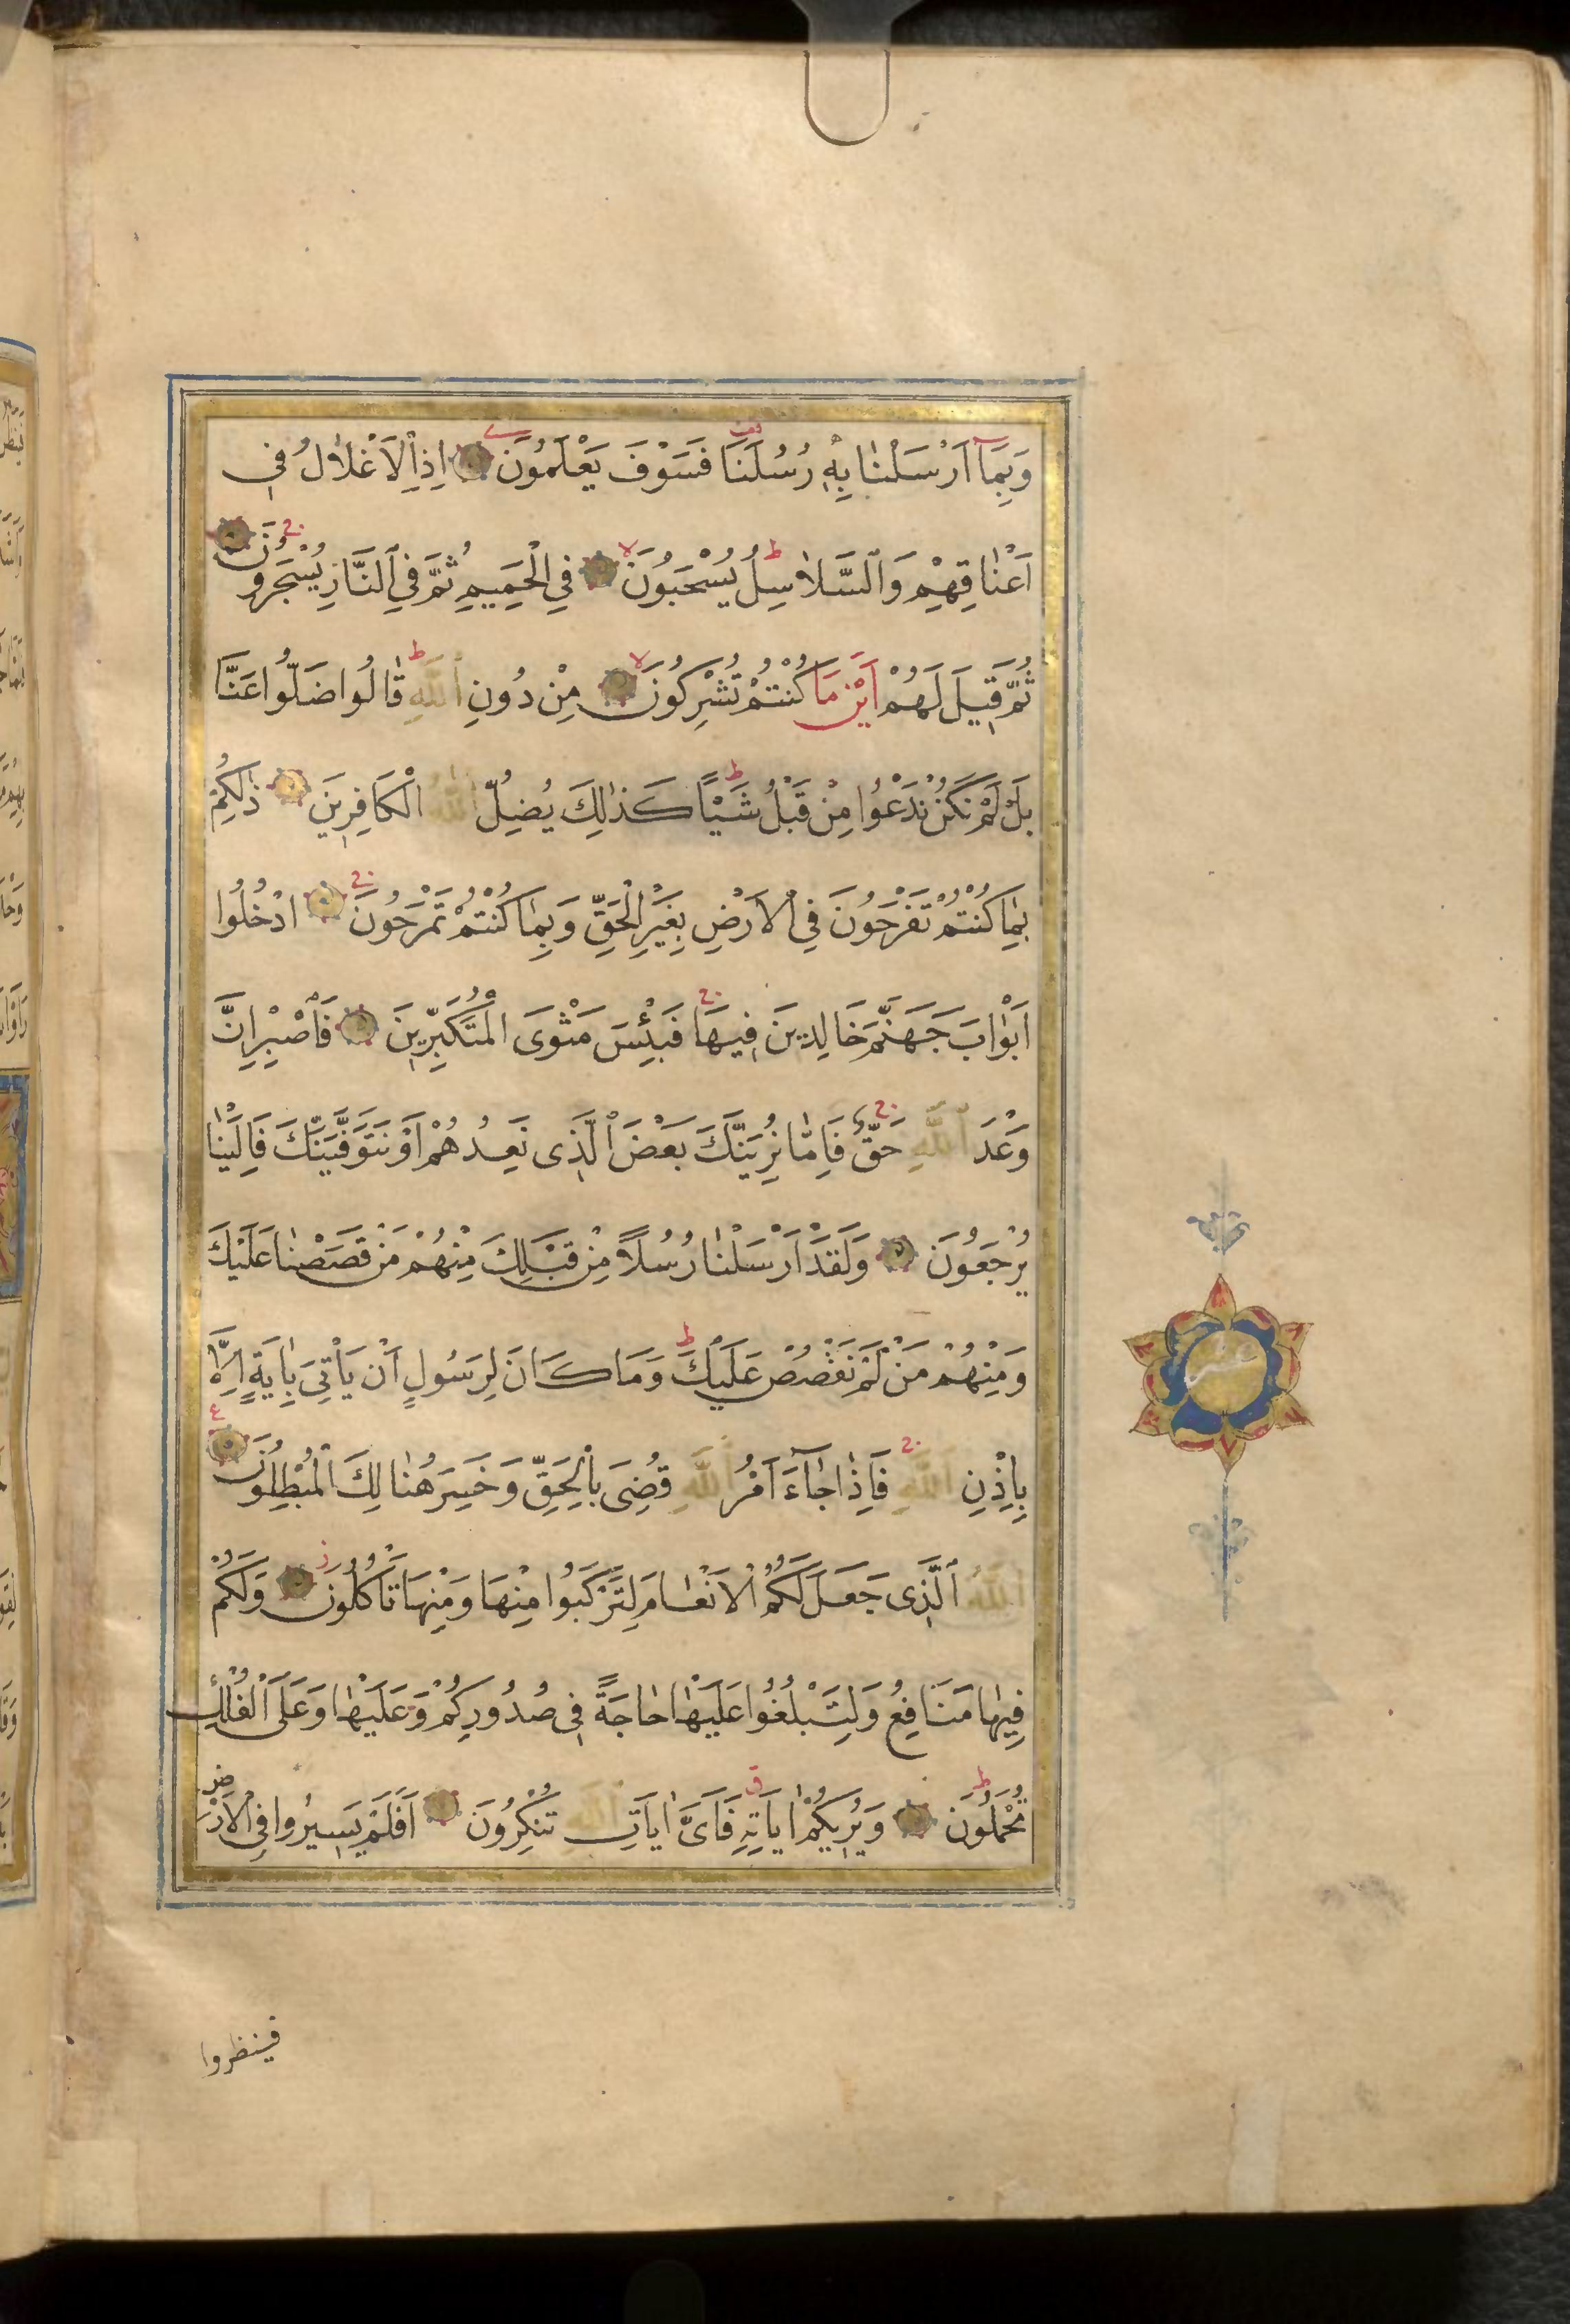 وَبِمَآ اَرْسَلْنٰا بِهٖ رُسُلَنَا فَسَوْفَ يَعْلَمُونَ اِذِ الْاَغْلَالُ فٖى
اَعْنٰاقِهِمْ وَالسَّلَاسِلُ يُسْحَبُونَ فِي الْحَمِيمِ ثُمَّ فِي النَّارِ يُسْجَرُونَ
ثُمَّ قٖيلَ لَهُمْ اَيْنَ مَا كُنْتُمْ تُشْرِكُونَ مِنْ دُونِ اللّٰهِ قٰالُوا ضَلُّوا عَنَّا
بَلْ لَمْ نَكُنْ نَدْعُوا مِنْ قَبْلُ شَيْـًٔا كَذٰلِكَ يُضِلُّ اللّٰهُ الْكَافِرٖينَ ذٰلِكُمْ
بِمٰا كُنْتُمْ تَفْرَحُونَ فِي الْاَرْضِ بِغَيْرِ الْحَقِّ وَبِمٰا كُنْتُمْ تَمْرَحُونَ ادْخُلُوا
اَبْوٰابَ جَهَنَّمَ خَالِدٖينَ فٖيهَا فَبِئْسَ مَثْوَى الْمُتَكَبِّرٖينَ فَاصْبِرْ اِنَّ
وَعْدَ اللّٰهِ حَقٌّ فَاِمّٰا نُرِيَنَّكَ بَعْضَ الَّذٖى نَعِدُهُمْ اَوْ نَتَوَفَّيَنَّكَ فَاِلَيْنٰا
يُرْجَعُونَ وَلَقَدْ اَرْسَلْنٰا رُسُلًا مِنْ قَبْلِكَ مِنْهُمْ مَنْ قَصَصْنٰا عَلَيْكَ
وَمِنْهُمْ مَنْ لَمْ نَقْصُصْ عَلَيْكَ وَمَا كَانَ لِرَسُولٍ اَنْ يَاْتِيَ بِاٰيَةٍ اِلَّا
بِاِذْنِ اللّٰهِ فَاِذٰا جٰٓاءَ اَمْرُ اللّٰهِ قُضِيَ بِالْحَقِّ وَخَسِرَ هُنٰالِكَ الْمُبْطِلُونَ
اللّٰهُ الَّذٖى جَعَلَ لَكُمُ الْاَنْعٰامَ لِتَرْكَبُوا مِنْهَا وَمِنْهَا تَاْكُلُونَ وَلَكُمْ
فٖيهٰا مَنَافِعُ وَلِتَبْلُغُوا عَلَيْهٰا حٰاجَةً فٖى صُدُورِكُمْ وَعَلَيْهٰا وَعَلَى الْفُلْكِ
تُحْمَلُونَ وَيُرٖيكُمْ اٰيَاتِهٖ فَاَىَّ اٰيَاتِ اللّٰهِ تُنْكِرُونَ اَفَلَمْ يَسٖيرُوا فِى الْاَرْضِ
عشر
فينظروا